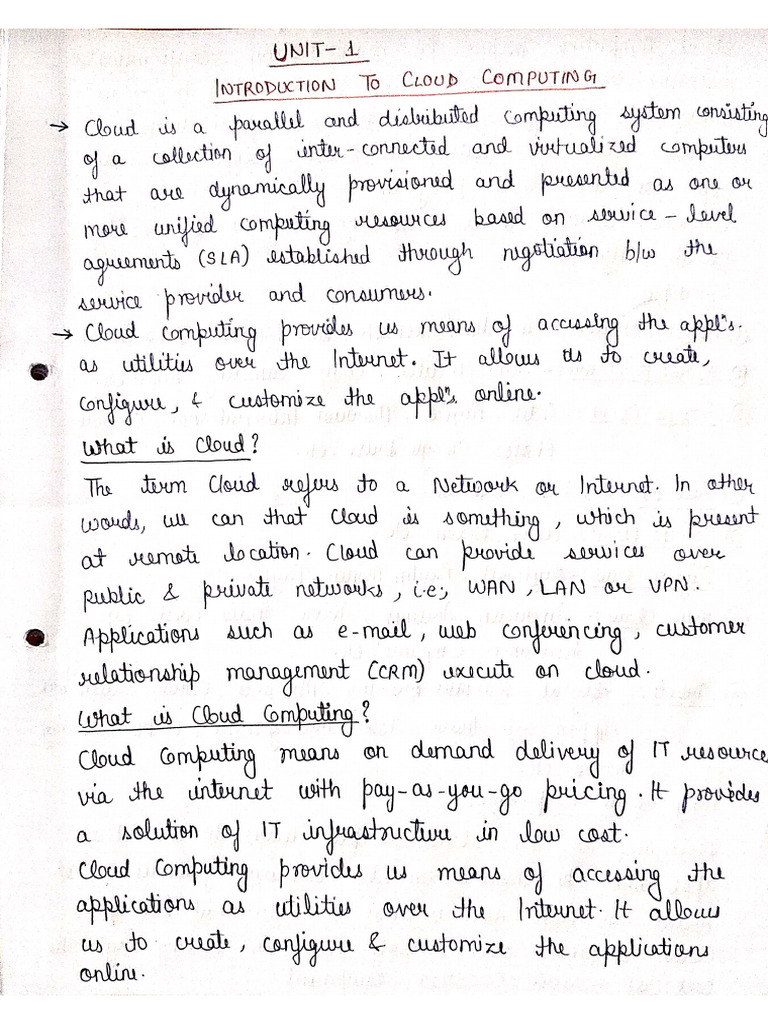 UNIT-1
INTRODUCTION TO CLOUD COMPUTING
→ Cloud is a parallel and distributed computing system consisting
of a collection of inter-connected and virtualized computers
that are dynamically provisioned and presented as one or
more unified computing resources based on service-level
agreements (SLA) established through negotiation b/w the
service provider and consumers.
→ Cloud Computing provides us means of accessing the appl's.
as utilities over the Internet. It allows us to create,
configure, & customize the appl's online.
What is Cloud?
The term Cloud refers to a Network or Internet. In other
words, we can that Cloud is something, which is present
at remote location. Cloud can provide services over
public & private networks, i.e., WAN, LAN or VPN.
Applications such as e-mail, web conferencing, customer
relationship management (CRM) execute on cloud.
What is Cloud Computing?
Cloud Computing means on demand delivery of IT resources
via the internet with pay-as-you-go pricing. It provides
a solution of IT infrastructure in low cost.
Cloud Computing provides us means of accessing the
applications as utilities over the Internet. It allows
us to create, configure & customize the applications
online.